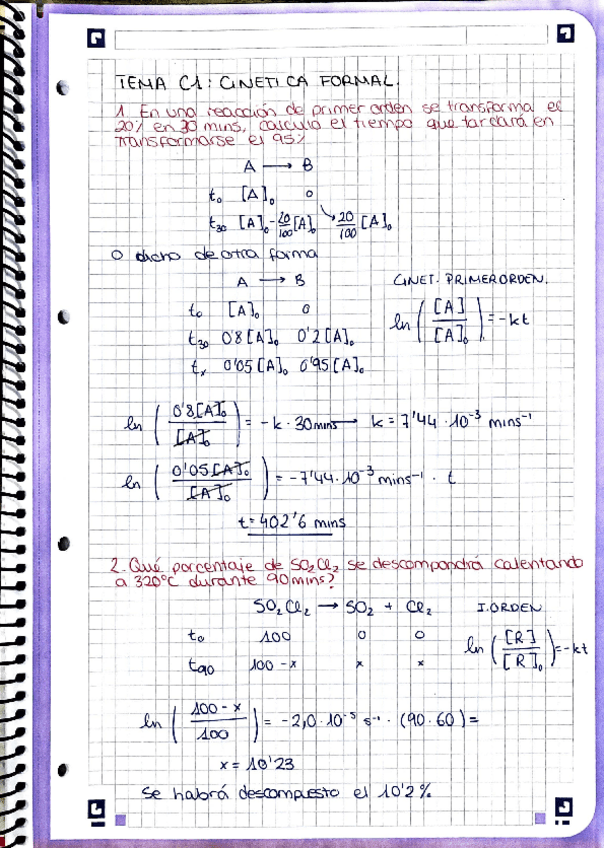 TEMA C1: CINETICA FORMAL.
1. En una reacción de primer orden se transforma el
20% en 30 mins, calcula el tiempo que tardará en
transformarse el 95%
A → B
t₀ [A]₀ 0
t₃₀ [A]₀ - 20/100 [A]₀ 20/100 [A]₀
O dicho de otra forma
A → B CINET. PRIMER ORDEN.
t₀ [A]₀ 0
ln ( [A] / [A]₀ ) = -kt
t₃₀ 0'8 [A]₀ 0'2 [A]₀
tₓ 0'05 [A]₀ 0'95 [A]₀
ln ( 0'8 [A]₀ / [A]₀ ) = -k · 30 mins → k = 7'44 · 10⁻³ mins⁻¹
ln ( 0'05 [A]₀ / [A]₀ ) = -7'44 · 10⁻³ mins⁻¹ · t
t = 402'6 mins
2. Qué porcentaje de SO₂Cl₂ se descompondrá calentando
a 320°C durante 90 mins?
SO₂Cl₂ → SO₂ + Cl₂ I. ORDEN
t₀ 100 0 0
ln ( [R] / [R]₀ ) = -kt
t₉₀ 100 - x x x
ln ( 100 - x / 100 ) = -2,0 · 10⁻⁵ s⁻¹ · (90 · 60) =
x = 10'23
Se habrá descompuesto el 10'2%